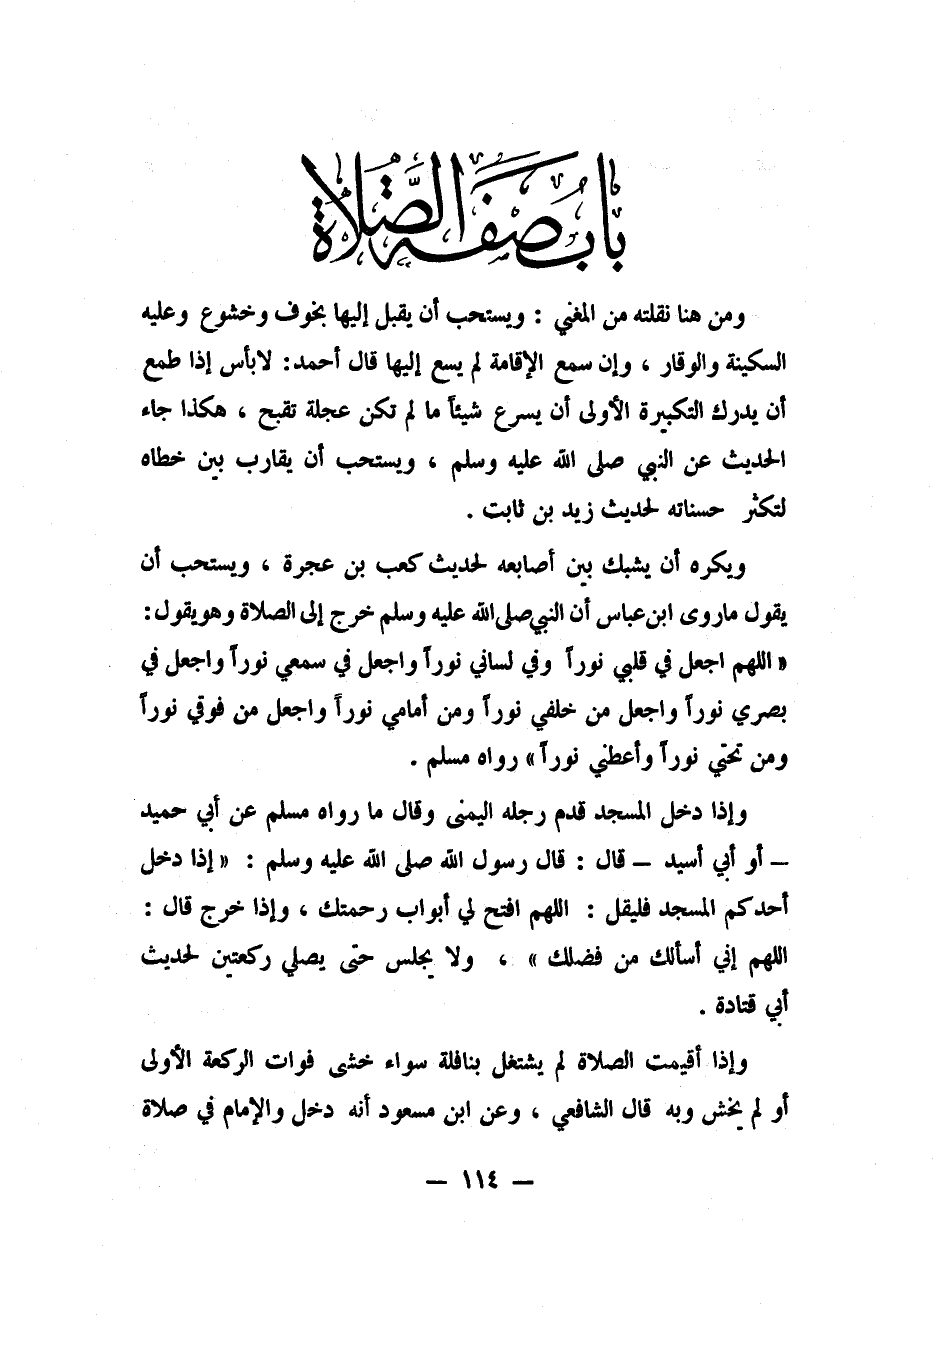 باب صفة الصلاة
ومن هنا نقلته من المغني : ويستحب أن يقبل إليها بخوف وخشوع وعليه
السكينة والوقار ، وإن سمع الإقامة لم يسع إليها قال أحمد: لابأس إذا طمع
أن يدرك التكبيرة الأولى أن يسرع شيئاً ما لم تكن عجلة تقبح ، هكذا جاء
الحديث عن النبي صلى الله عليه وسلم ، ويستحب أن يقارب بين خطاه
لتكثر حسناته لحديث زيد بن ثابت .
ويكره أن يشبك بين أصابعه لحديث كعب بن عجرة ، ويستحب أن
يقول ماروى ابن عباس أن النبي صلى الله عليه وسلم خرج إلى الصلاة وهو يقول:
« اللهم اجعل في قلبي نوراً وفي لساني نوراً واجعل في سمعي نوراً واجعل في
بصري نوراً واجعل من خلفي نوراً ومن أمامي نوراً واجعل من فوقي نوراً
ومن تحتي نوراً وأعطني نوراً » رواه مسلم .
وإذا دخل المسجد قدم رجله اليمنى وقال ما رواه مسلم عن أبي حميد
– أو أبي أسيد – قال : قال رسول الله صلى الله عليه وسلم : « إذا دخل
أحدكم المسجد فليقل : اللهم افتح لي أبواب رحمتك ، وإذا خرج قال :
اللهم إني أسألك من فضلك » ، ولا يجلس حتى يصلي ركعتين لحديث
أبي قتادة .
وإذا أقيمت الصلاة لم يشتغل بنافلة سواء خشى فوات الركعة الأولى
أو لم يخش وبه قال الشافعي ، وعن ابن مسعود أنه دخل والإمام في صلاة
– ١١٤ –